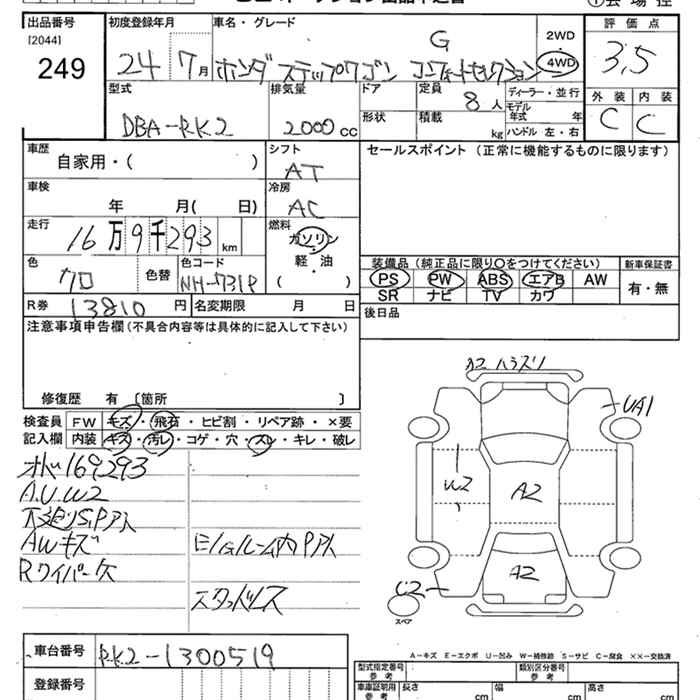 出品番号
[2044]
249
初度登録年月
24 7月
車名・グレード
G
ホンダ ステップワゴン コンフォートセレクション
2WD
4WD
評価点
3.5
外装 内装
C C
型式
DBA-RK2
排気量
2000cc
ドア
形状
定員
8人
積載
kg
ディーラー・並行
モデル年式 年
ハンドル 左・右
車歴
自家用・( )
シフト
AT
セールスポイント (正常に機能するものに限ります)
車検
年 月( 日)
冷房
AC
走行
16万9千293km
燃料
ガソリン
軽・油
( )
色
クロ
色替
色コード
NH-731P
装備品(純正品に限り○をつけてください)
新車保証書
PS PW ABS エアB AW
SR ナビ TV カワ
有・無
R券
13810円
名変期限 月 日
後日品
注意事項申告欄(不具合内容等は具体的に記入して下さい)
修復歴 有 〔箇所 〕
検査員記入欄
FW キズ・飛石・ヒビ割・リペア跡・×要
内装 キズ・汚レ・コゲ・穴・スレ・キレ・破レ
169293
A.U.W2
下廻りS.Pアト
AWキズ
Rワイパー欠
E/Gルーム内Pアト
スタッドレス
A2 ハラズリ
UA1
W2
A2
A2
C2
スペア
A-キズ E-エクボ U-凹み W-補修跡 S-サビ C-腐食 ××-交換済
車台番号
RK2-1300519
登録番号
型式指定番号
参考
類別区分番号
参考
車庫証明用
参考
長さ cm
幅 cm
高さ cm